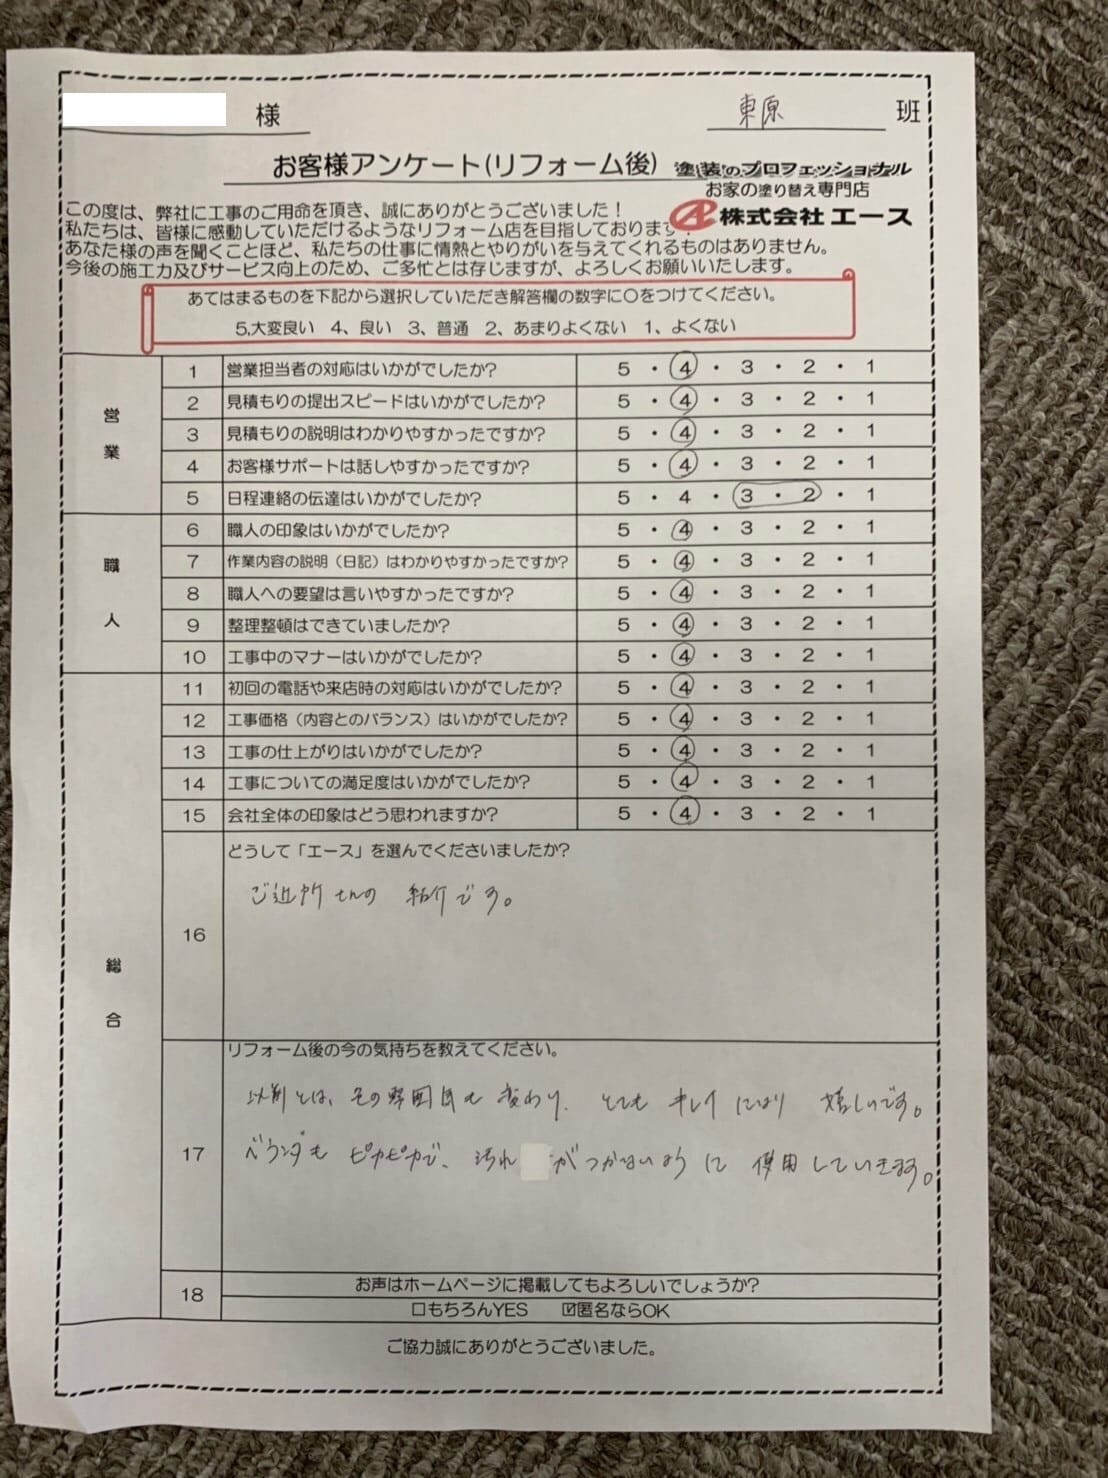 様
東原 班
お客様アンケート(リフォーム後)
塗装のプロフェッショナル
お家の塗り替え専門店
株式会社エース
この度は、弊社に工事のご用命を頂き、誠にありがとうございました!
私たちは、皆様に感動していただけるようなリフォーム店を目指しております!
あなた様の声を聞くことほど、私たちの仕事に情熱とやりがいを与えてくれるものはありません。
今後の施工力及びサービス向上のため、ご多忙とは存じますが、よろしくお願いいたします。
あてはまるものを下記から選択していただき解答欄の数字に〇をつけてください。
5,大変良い 4、良い 3、普通 2、あまりよくない 1、よくない
営業
1 営業担当者の対応はいかがでしたか? 5・4・3・2・1
2 見積もりの提出スピードはいかがでしたか? 5・4・3・2・1
3 見積もりの説明はわかりやすかったですか? 5・4・3・2・1
4 お客様サポートは話しやすかったですか? 5・4・3・2・1
5 日程連絡の伝達はいかがでしたか? 5・4・3・2・1
職人
6 職人の印象はいかがでしたか? 5・4・3・2・1
7 作業内容の説明(日記)はわかりやすかったですか? 5・4・3・2・1
8 職人への要望は言いやすかったですか? 5・4・3・2・1
9 整理整頓はできていましたか? 5・4・3・2・1
10 工事中のマナーはいかがでしたか? 5・4・3・2・1
総合
11 初回の電話や来店時の対応はいかがでしたか? 5・4・3・2・1
12 工事価格(内容とのバランス)はいかがでしたか? 5・4・3・2・1
13 工事の仕上がりはいかがでしたか? 5・4・3・2・1
14 工事についての満足度はいかがでしたか? 5・4・3・2・1
15 会社全体の印象はどう思われますか? 5・4・3・2・1
16 どうして「エース」を選んでくださいましたか?
ご近所さんの 紹介です。
17 リフォーム後の今の気持ちを教えてください。
以前とは、その雰囲気も 変わり、とても キレイになり 嬉しいです。
ベランダも ピカピカで、汚れがつかないように 使用していきます。
18 お声はホームページに掲載してもよろしいでしょうか?
□もちろんYES ☑匿名ならOK
ご協力誠にありがとうございました。